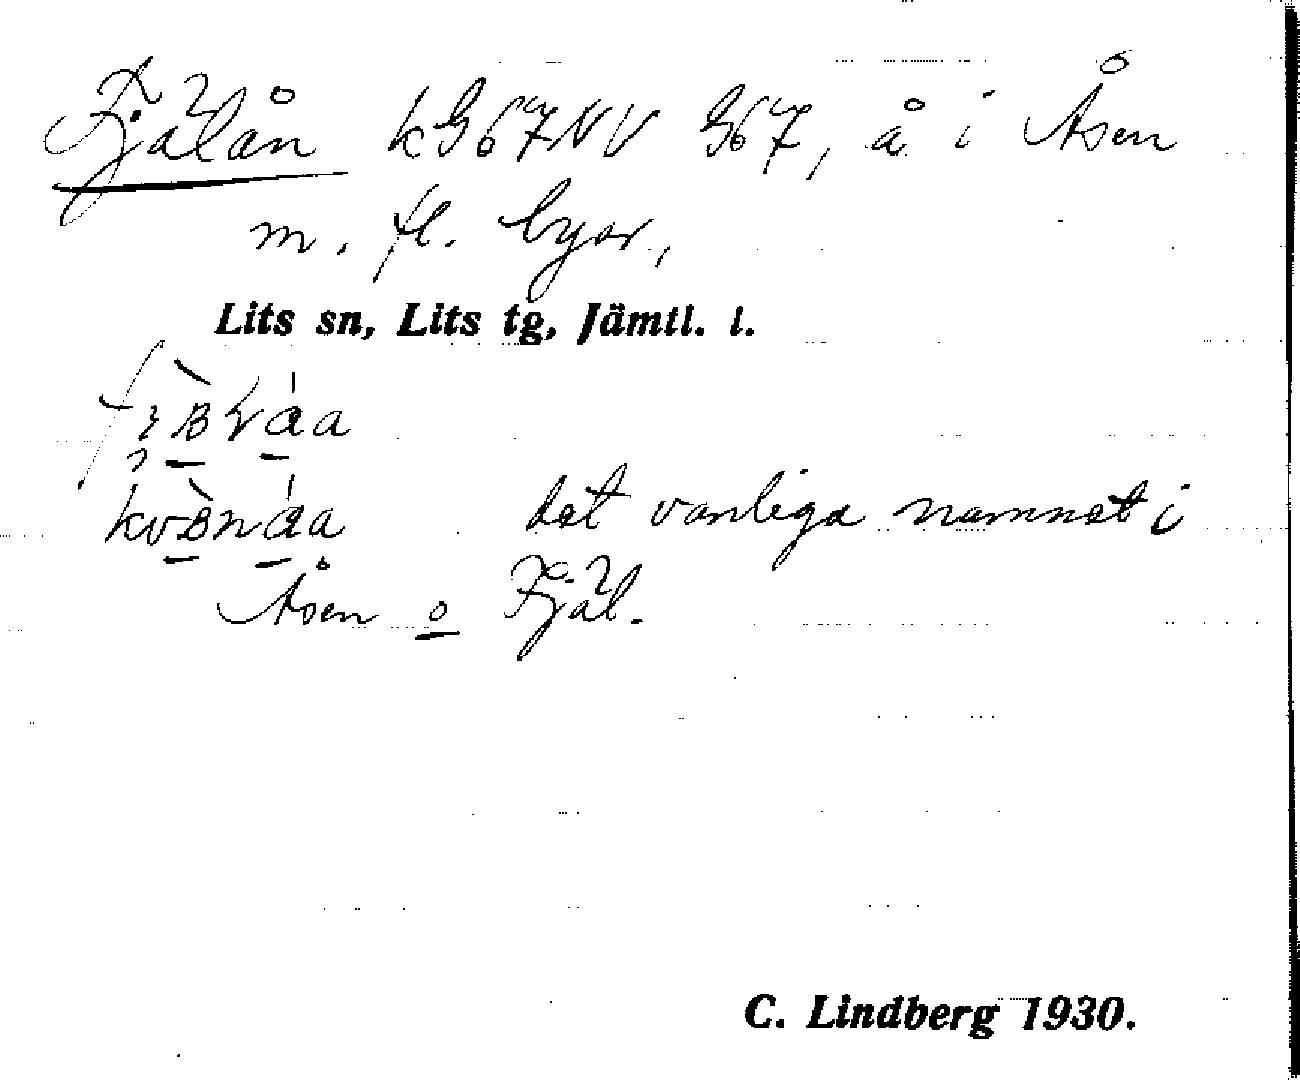 Fjälån k G67NV G67, å i Åsen
m. fl. byar,
Lits sn, Lits tg, Jämtl. l.
det vanliga namnet i
Åsen o Fjäl.
C. Lindberg 1930.